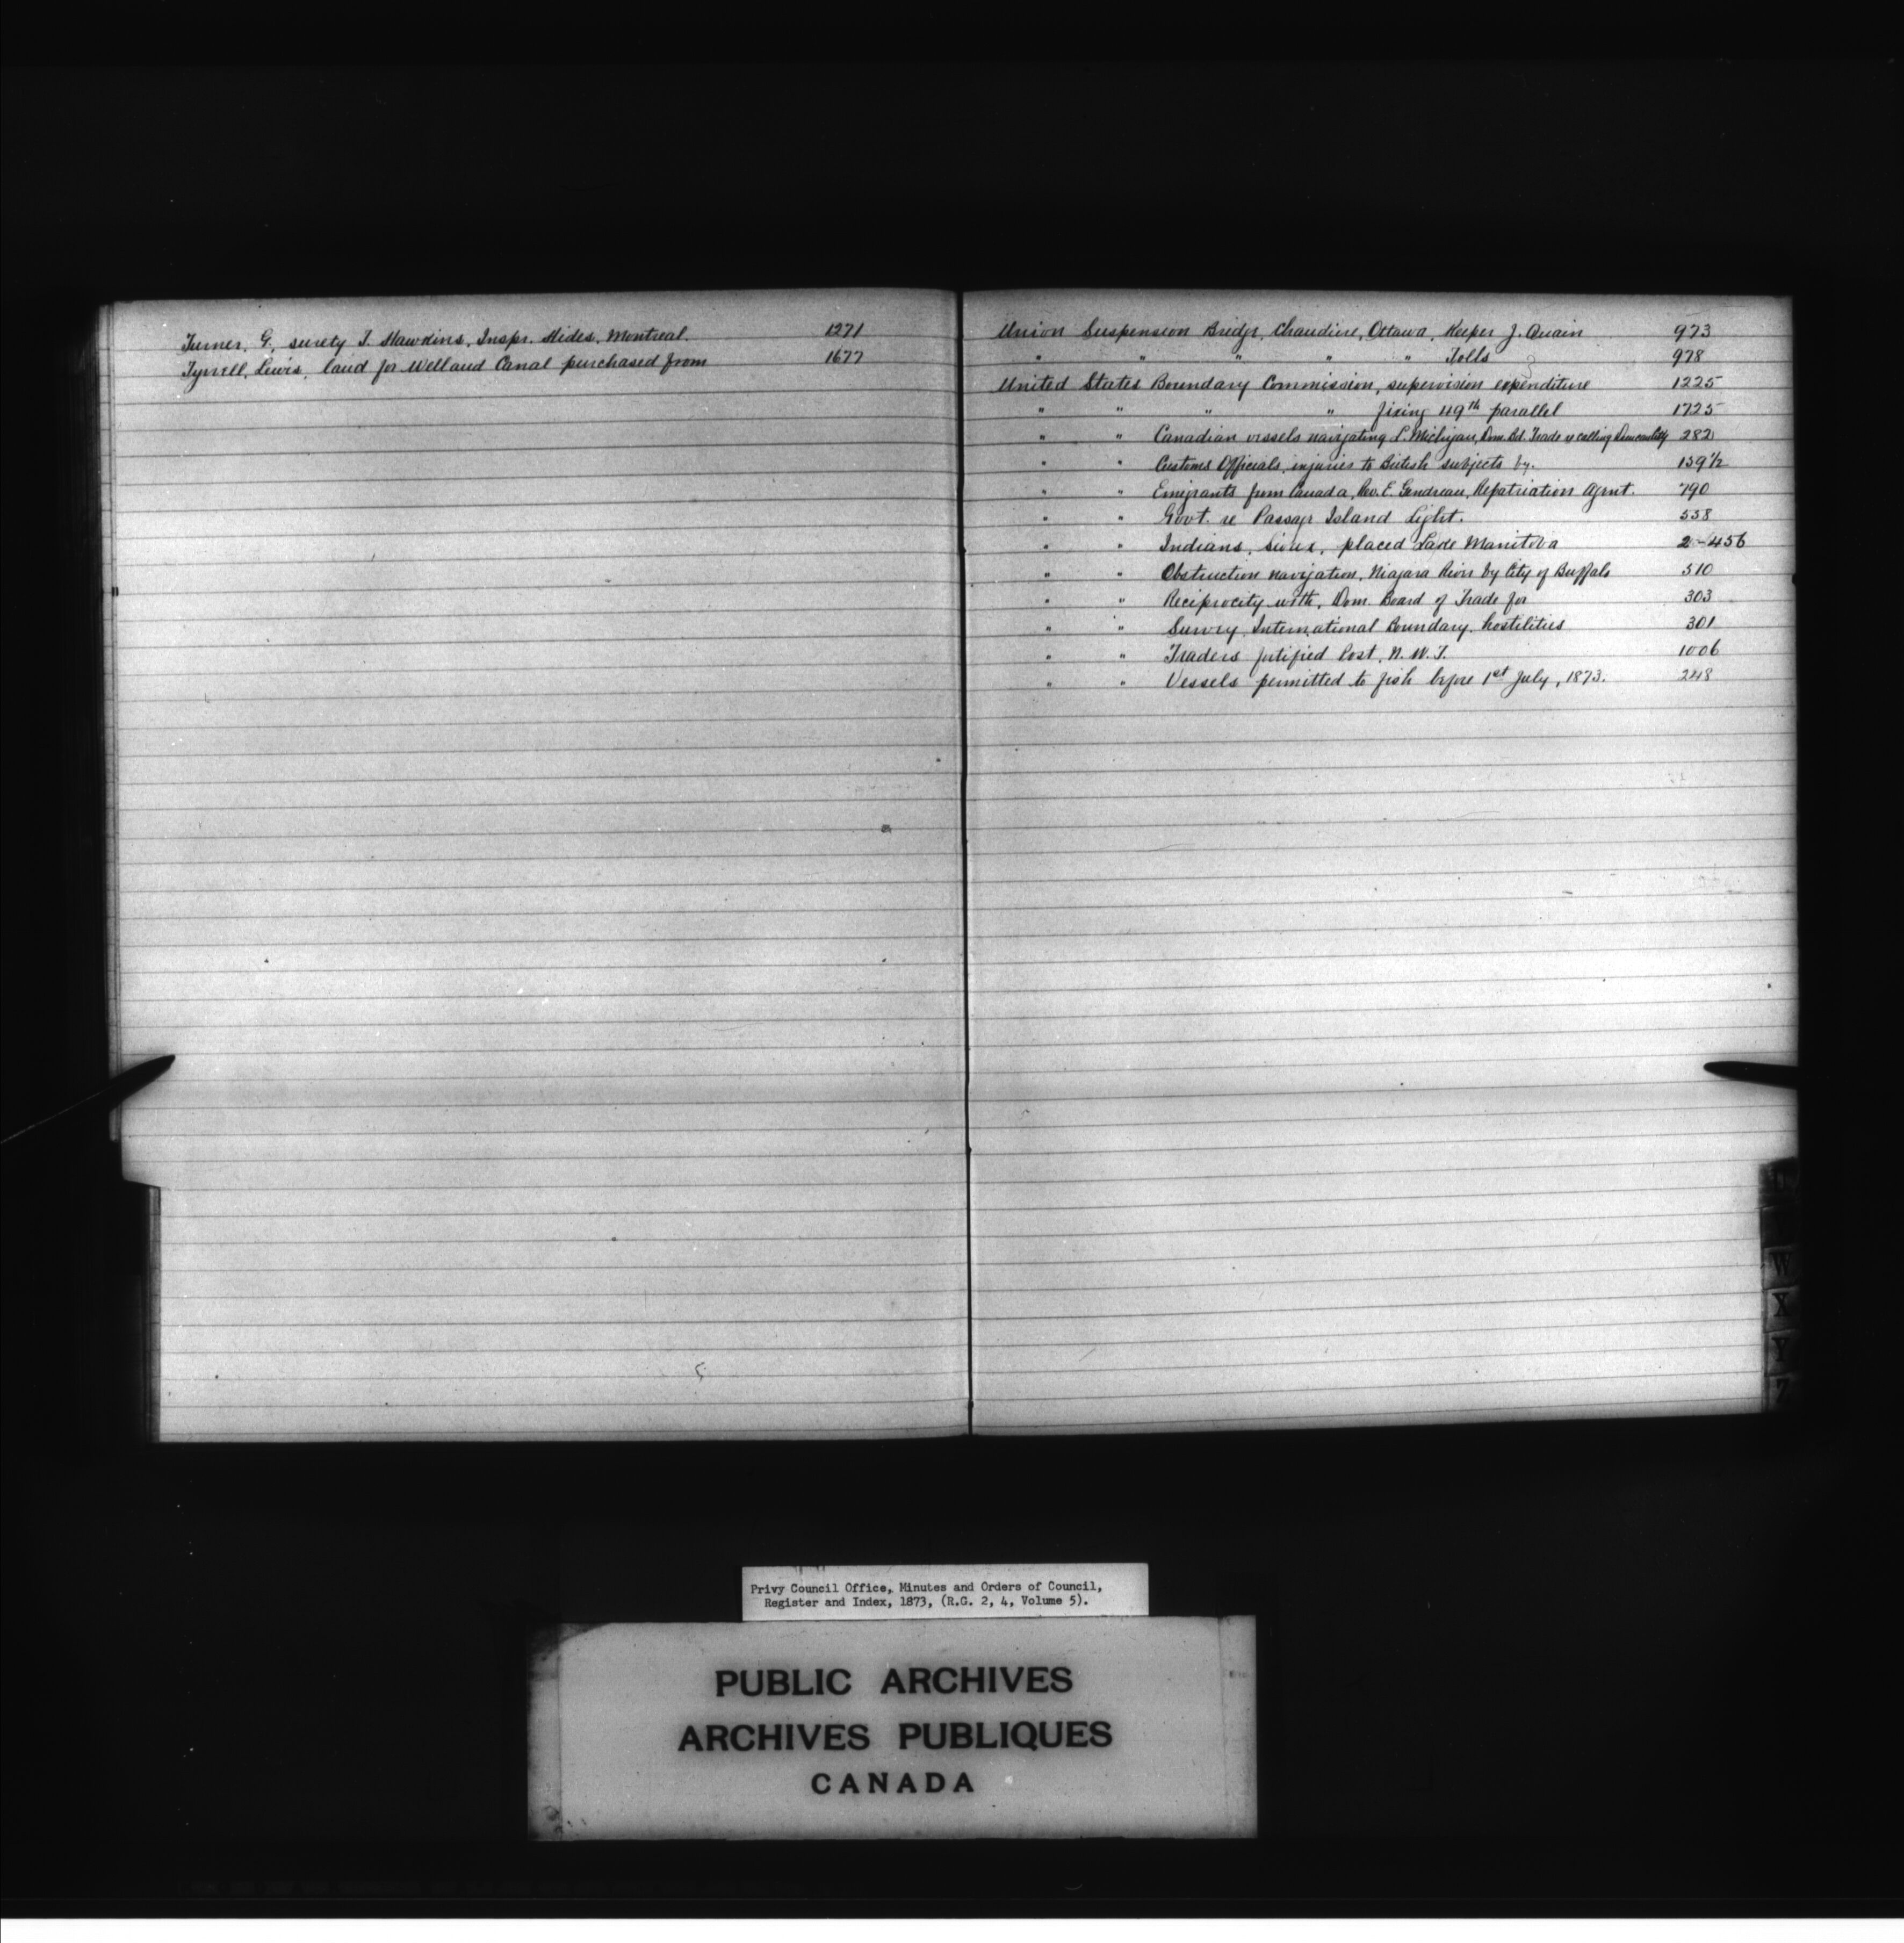 Turner, G., surety T. Hawkins, Inspr. Hides, Montreal. 1271
Tyrrell, Lewis, land for Welland Canal purchased from 1677
Union Suspension Bridge, Chaudiere, Ottawa, Keeper J. Quain 973
" " " " " Tolls 978
United States Boundary Commission, supervision expenditure 1225
" " " " fixing 49th parallel 1725
" " Canadian vessels navigating L. Michigan, Dom. Bd. Trade re calling 282
" " Customs Officials, injuries to British subjects by. 159 1/2
" " Emigrants from Canada, Rev. E. Gendreau, Repatriation Agent. 790
" " Govt. re Passage Island Light. 538
" " Indians, Sioux, placed Lake Manitoba 2-456
" " Obstruction navigation, Niagara River by City of Buffalo 510
" " Reciprocity with, Dom. Board of Trade for 303
" " Survey, International Boundary, hostilities 301
" " Traders fortified Post, N.W.T. 1006
" " Vessels permitted to fish before 1st July, 1873. 248
W
X
Y
Z
Privy Council Office, Minutes and Orders of Council,
Register and Index, 1873, (R.G. 2, 4, Volume 5).
PUBLIC ARCHIVES
ARCHIVES PUBLIQUES
CANADA